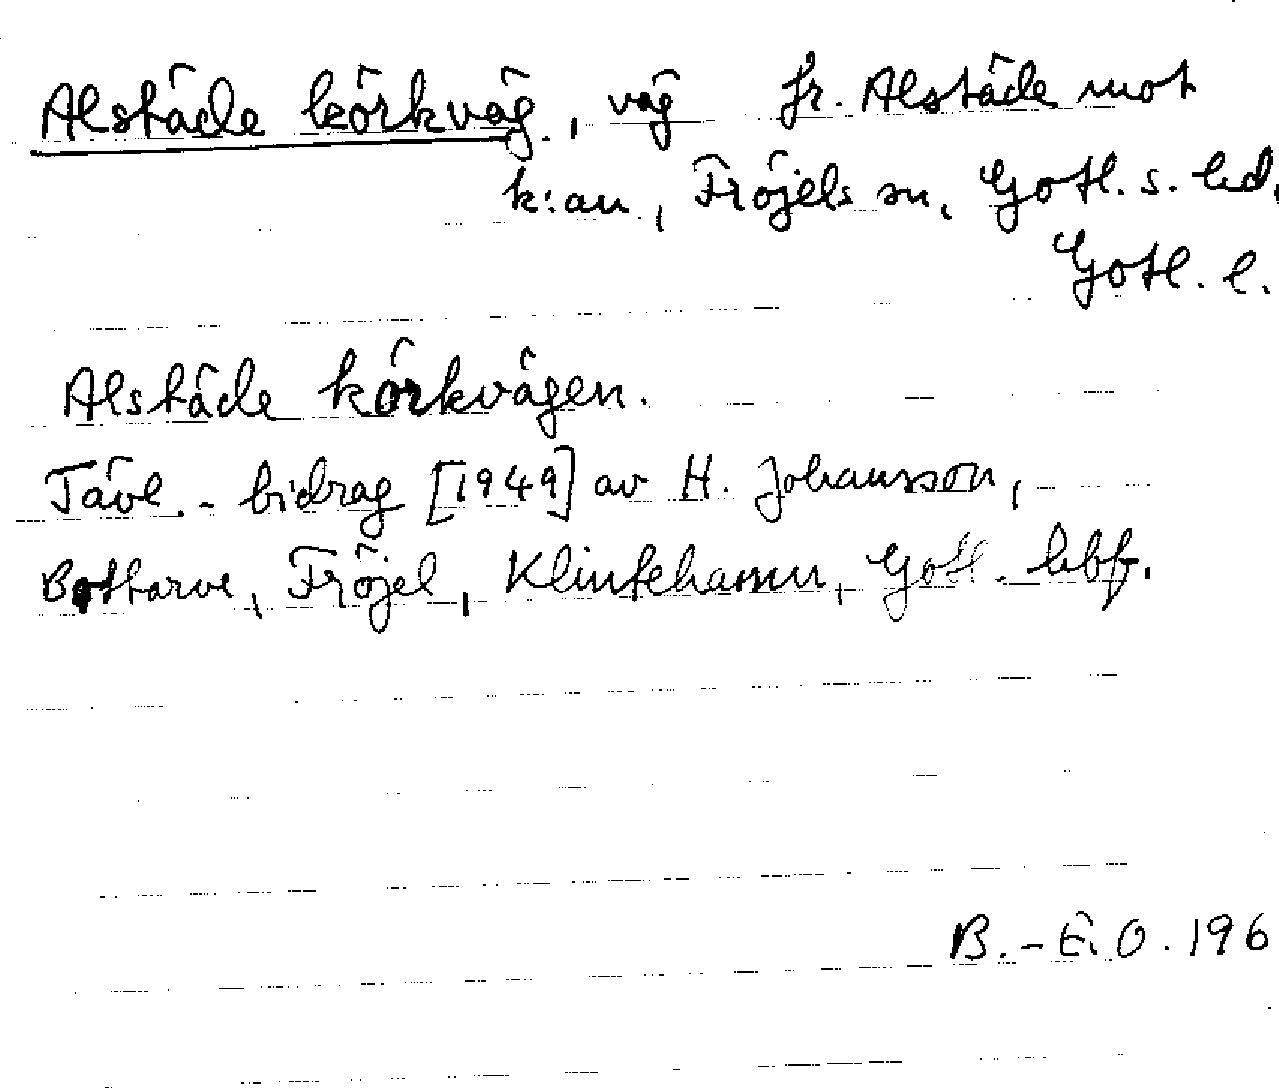 Alstäde körkväg, väg fr. Alstäde mot
k:an, Fröjels sn, Gotl. s. hd,
Gotl. l.
Alstäde körkvägen.
Tävl.-bidrag [1949] av H. Johansson,
Bottarve, Fröjel, Klintehamn, Gotl. hbf.
B.-E.O. 196